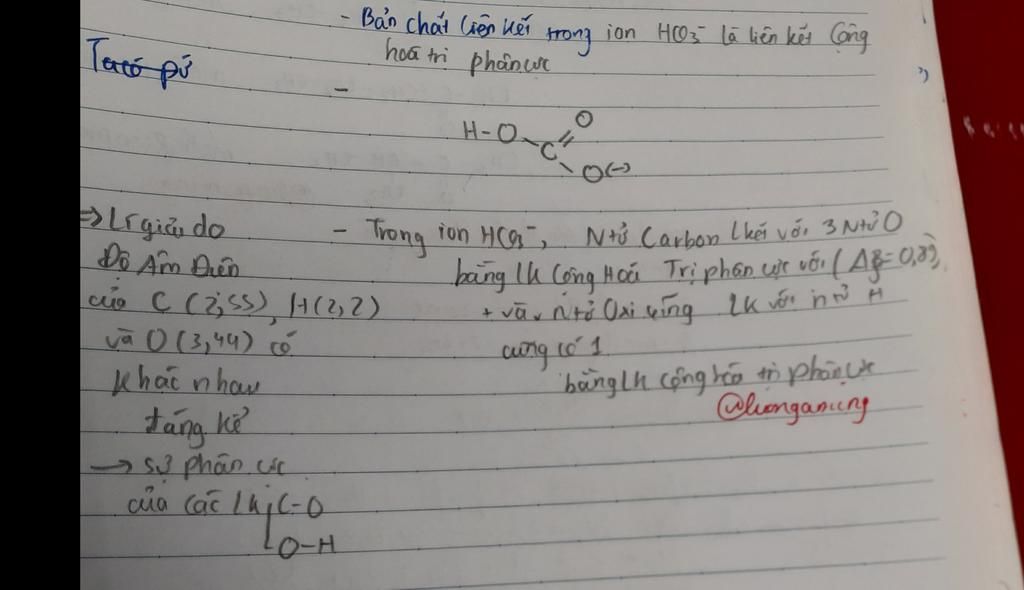 - Bản chất liên kết trong ion HCO3⁻ là liên kết Cộng
hoá trị phân cực
Ta có pứ
-
O
H-O
C
O(-)
=> Lí giải do
Độ Âm Điện
của C (2,55), H(2,2)
và O (3,44) có
khác nhau
đáng kể
→ sự phân cực
của các lk C-O
O-H
- Trong ion HCO3⁻, Ntử Carbon lkết với 3 Ntử O
bằng lk Cộng Hoá Trị phân cực với (Δ = 0,89)
+ và ntử Oxi cũng lk với ntử H
cũng có 1
bằng lk cộng hóa trị phân cực